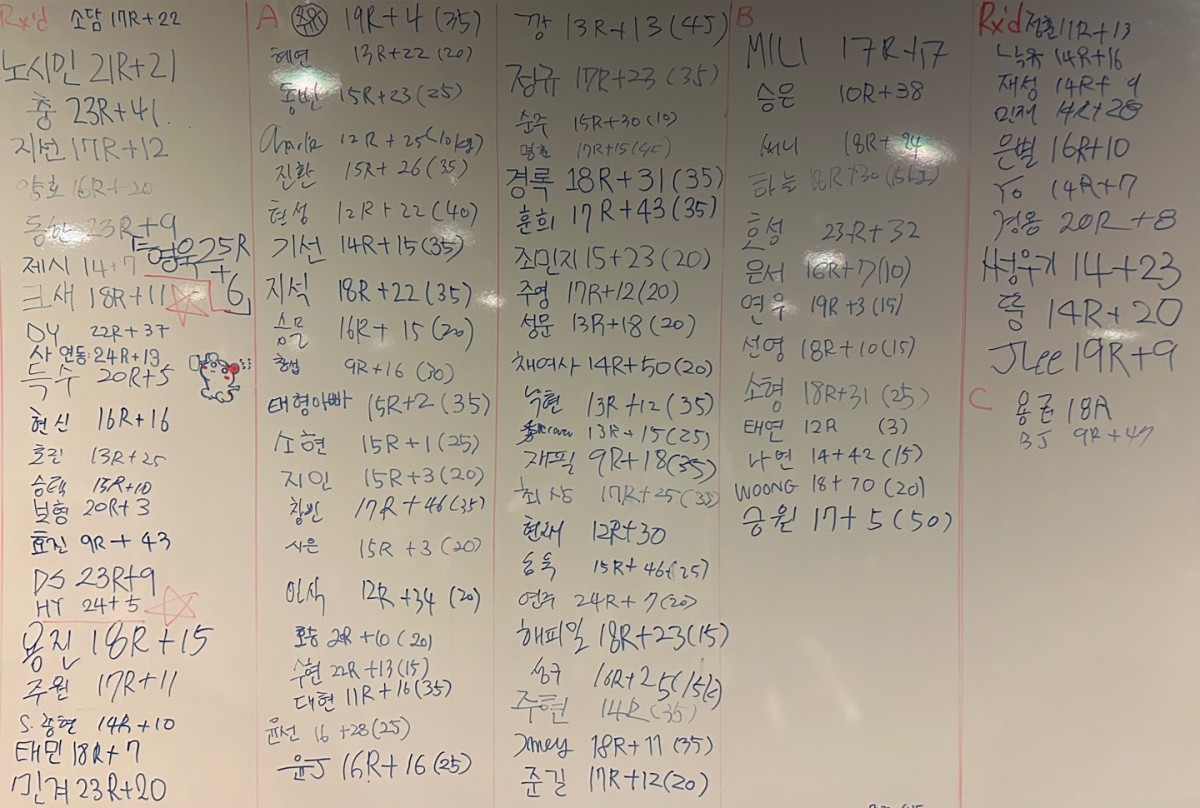 Rx'd 소담 17R+22
노시민 21R+21
충 23R+41.
지선 17R+12
약호 16R+20
동한 23R+9
영욱 25R+6
제시 14+7
크새 18R+11
DY 22R+37
사연동: 24R+13
득수 20R+5
현신 16R+16
효진 13R+25
승택 15R+10
보형 20R+3
효진 9R+43
DS 23R+9
HY 24+5
용진 18R+15
주원 17R+11
S. 종현 14R+10
태민 18R+7
민겨 23R+20
A 19R+4 (35)
혜연 13R+22 (20)
15R+23 (25)
12R+25 (10kg)
진환 15R+26 (35)
현성 12R+22 (40)
기선 14R+15 (35)
지석 18R+22 (35)
16R+15 (20)
9R+16 (30)
태형아빠 15R+2 (35)
소현 15R+1 (25)
지인 15R+3 (20)
창빈 17R+46 (35)
시은 15R+3 (20)
인식 12R+34 (20)
+10 (20)
수현 22R+13 (15)
대현 11R+16 (35)
윤선 16+28 (25)
윤J 16R+16 (25)
깡 13R+13 (45)
정규 17R+23 (35)
순주 15R+30 (10)
명훈 17R+15
경록 18R+31 (35)
훈희 17R+43 (35)
조민지 15+23 (20)
주영 17R+12 (20)
성문 13R+18 (20)
채여사 14R+50 (20)
낙현 13R+12 (35)
13R+15 (25)
재필 9R+18 (35)
최상 17R+25 (35)
현채 12R+30
15R+46 (25)
연주 24R+7 (20)
해피일 18R+23 (15)
성규 16R+25
주현 14R (35)
18R+11 (35)
준길 17R+12 (20)
B
MILI 17R+17
승은 10R+38
써니 18R+24
하늘 18R+30
호성 23R+32
윤서 16R+7 (10)
연우 19R+3 (15)
선영 18R+10 (15)
소형 18R+31 (25)
태연 12R (3)
나연 14+42 (15)
WOONG 18+70 (20)
승원 17+5 (50)
Rx'd 정훈 11R+13
14R+16
재성 14R+9
민재
은별 16R+10
Yo 14R+7
경용 20R+8
써우기 14+23
14R+20
JLee 19R+9
C 용권 18R
BJ 9R+47